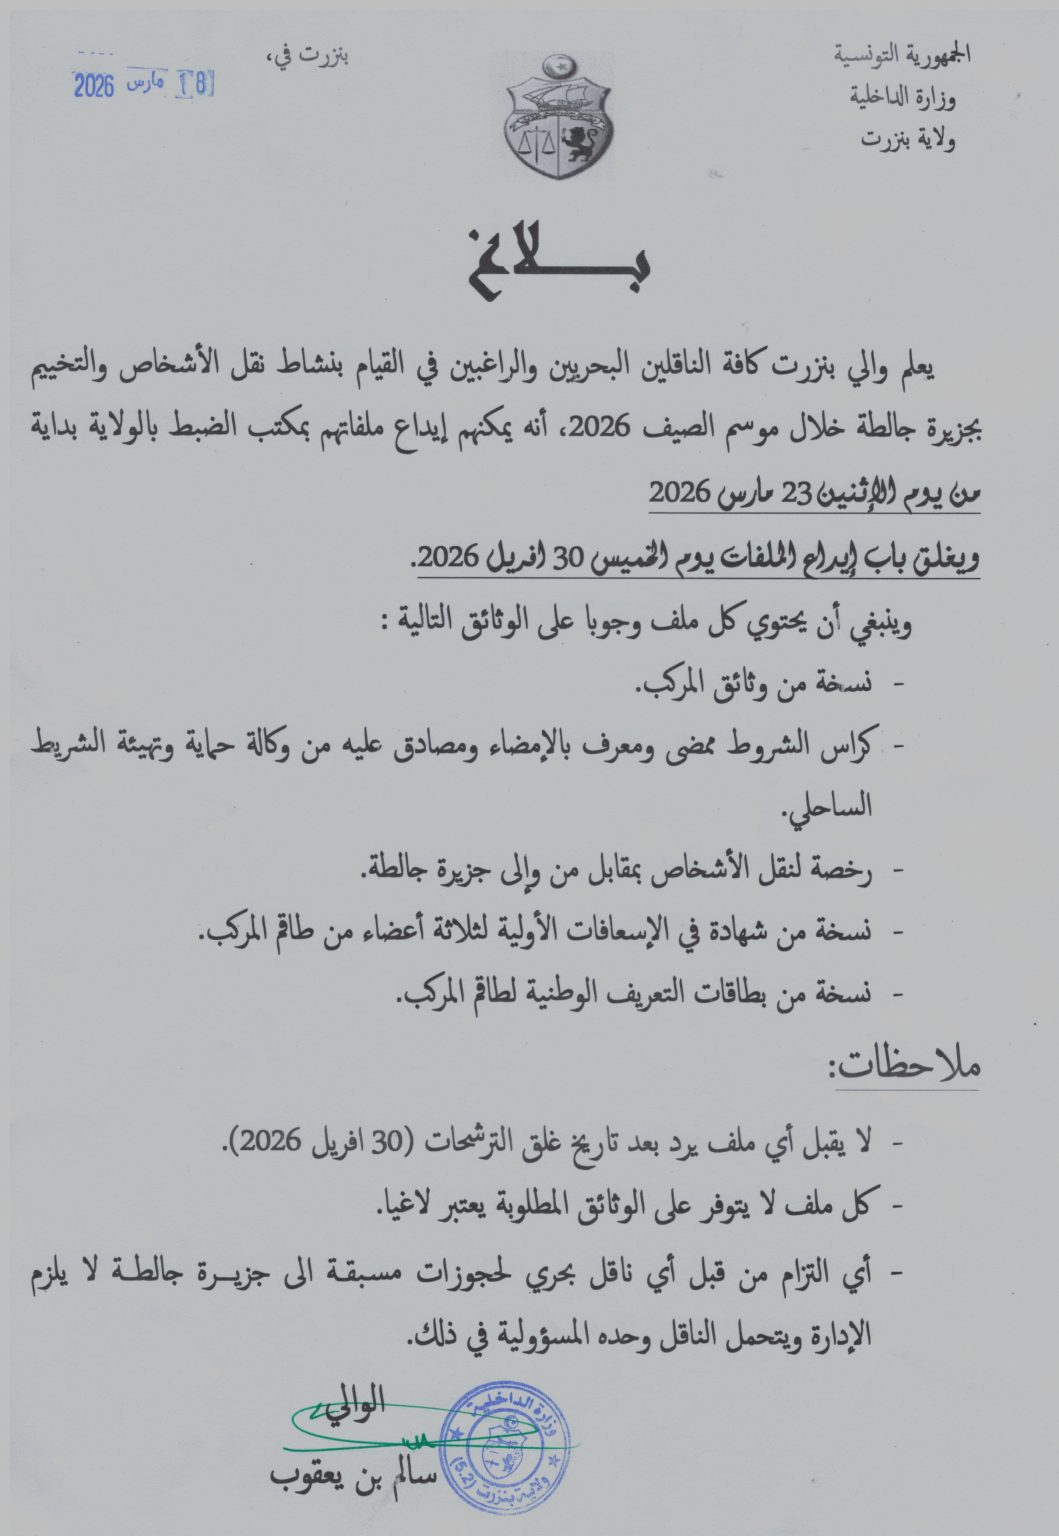 الجمهورية التونسية
وزارة الداخلية
ولاية بنزرت
بنزرت في،
18 مارس 2026
بلاغ
يعلم والي بنزرت كافة الناقلين البحريين والراغبين في القيام بنشاط نقل الأشخاص والتخييم
بجزيرة جالطة خلال موسم الصيف 2026، أنه يمكنهم إيداع ملفاتهم بمكتب الضبط بالولاية بداية
من يوم الإثنين 23 مارس 2026
ويغلق باب إيداع الملفات يوم الخميس 30 افريل 2026.
وينبغي أن يحتوي كل ملف وجوبا على الوثائق التالية :
- نسخة من وثائق المركب.
- كراس الشروط ممضى ومعرف بالإمضاء ومصادق عليه من وكالة حماية وتهيئة الشريط
الساحلي.
- رخصة لنقل الأشخاص بمقابل من وإلى جزيرة جالطة.
- نسخة من شهادة في الإسعافات الأولية لثلاثة أعضاء من طاقم المركب.
- نسخة من بطاقات التعريف الوطنية لطاقم المركب.
ملاحظات:
- لا يقبل أي ملف يرد بعد تاريخ غلق الترشحات (30 افريل 2026).
- كل ملف لا يتوفر على الوثائق المطلوبة يعتبر لاغيا.
- أي التزام من قبل أي ناقل بحري لحجوزات مسبقة الى جزيرة جالطة لا يلزم
الإدارة ويتحمل الناقل وحده المسؤولية في ذلك.
الوالي
سالم بن يعقوب
وزارة الداخلية
ولاية بنزرت (5.2)